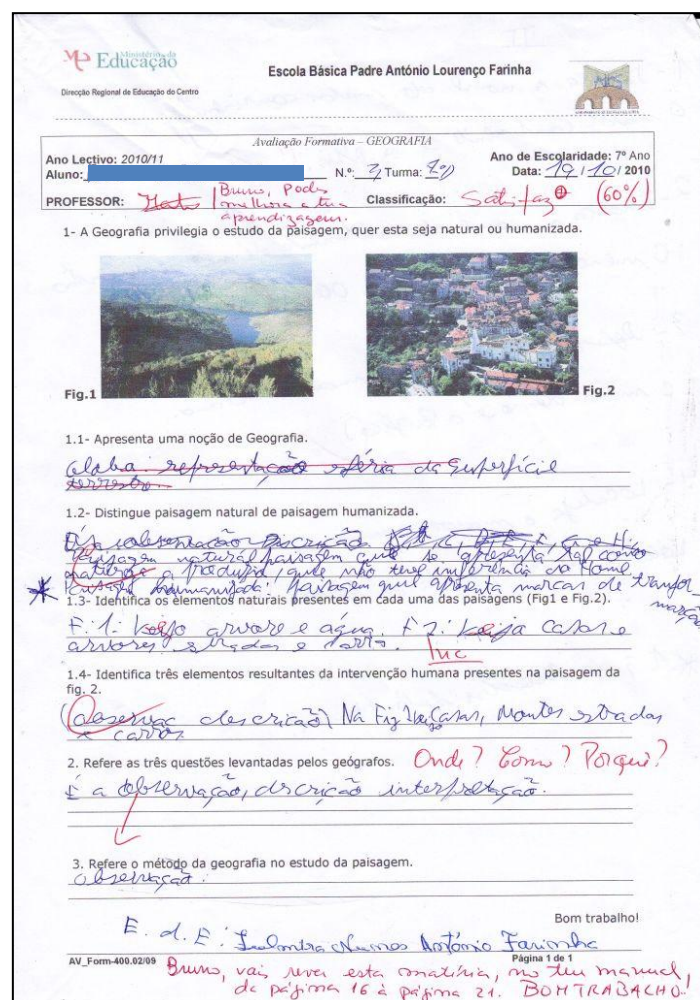 Ministério da
Educação
Direcção Regional de Educação do Centro
Escola Básica Padre António Lourenço Farinha
Avaliação Formativa – GEOGRAFIA
Ano Lectivo: 2010/11
Ano de Escolaridade: 7º Ano
Aluno: N.º: 3 Turma: Data: 19/10/2010
PROFESSOR: Bruno, Podes Classificação: Satisfaz (60%)
melhora a tua
aprendizagem.
1- A Geografia privilegia o estudo da paisagem, quer esta seja natural ou humanizada.
Fig.1
Fig.2
1.1- Apresenta uma noção de Geografia.
representação da superfície
terrestre
1.2- Distingue paisagem natural de paisagem humanizada.
É a observação Descrição
paisagem natural paisagem que se apresenta tal como
a natureza a que não teve do Home
paisagem que apresenta marcas de tranfor
mação
1.3- Identifica os elementos naturais presentes em cada uma das paisagens (Fig1 e Fig.2).
F: 1- arvore e água. F 2: casas e
arvores e
Inc
1.4- Identifica três elementos resultantes da intervenção humana presentes na paisagem da
fig. 2.
descrição) Na Fig casas,
e carros
2. Refere as três questões levantadas pelos geógrafos. Onde? Como? Porquê?
É a observação, discrição interpretação.
3. Refere o método da geografia no estudo da paisagem.
observação.
Bom trabalho!
E. d. E: Nunes António Farinha
AV_Form-400.02/09
Página 1 de 1
Bruno, vais rever esta matéria, no teu manual,
da página 16 à página 21. BOM TRABALHO.